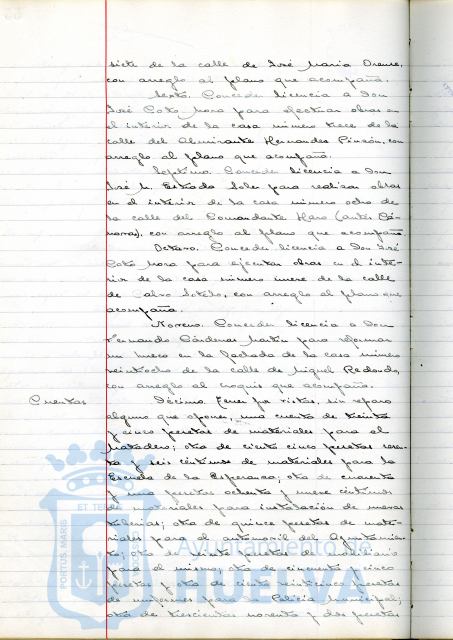 siete de la calle de José Maria Orense,
con arreglo al plano que acompaña.
Sexto. Conceder licencia a Don
José Coto Mora para efectuar obras en
el interior de la casa número trece de la
calle del Almirante Hernandez Pinzón, con
arreglo al plano que acompaña.
Septimo. Conceder licencia a Don
José M. Estrada Soler para realizar obras
en el interior de la casa número ocho de
la calle del Comandante Haro (antes Cá-
novas), con arreglo al plano que acompaña
Octavo. Conceder licencia a Don José
Coto Mora para ejecutar obras en el inte-
rior de la casa número nueve de la calle
de Calvo Sotelo, con arreglo al plano que
acompaña.
Noveno. Conceder licencia a Don
Fernando Cárdenas Martín para reformar
un hueco en la fachada de la casa número
veintiocho de la calle de Miguel Redondo,
con arreglo al croquis que acompaña.
Cuentas
Décimo. Tener por vistas, sin reparo
alguno que oponer, una cuenta de treinta
y cinco pesetas de materiales para el
Matadero; otra de ciento cinco pesetas
y seis céntimos de materiales para la
Escuela de la Esperanza; otra de cuarenta
y una pesetas ochenta y nueve céntimos
de materiales para instalación de nuevas
tuberias; otra de quince pesetas de mate-
riales para el automovil del Ayuntamien-
to; otra de veinte pesetas de mobiliario
para el mismo; otra de cincuenta y cinco
pesetas y otra de ciento veinticinco pesetas
de uniformes para la Policia Municipal;
otra de trescientas noventa y dos pesetas
ET TERRAE
PORTUS MARIS
Ayuntamiento de
HUELVA